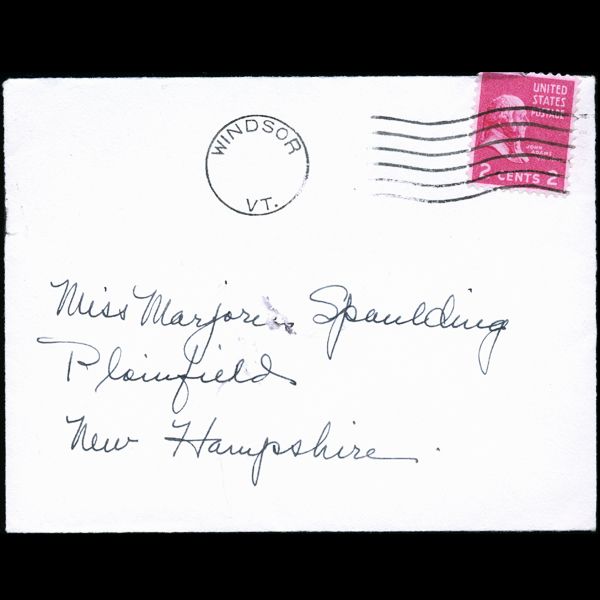 WINDSOR
VT.
UNITED
STATES
POSTAGE
JOHN
ADAMS
2 CENTS 2
Miss Marjorie Spaulding
Plainfield
New Hampshire